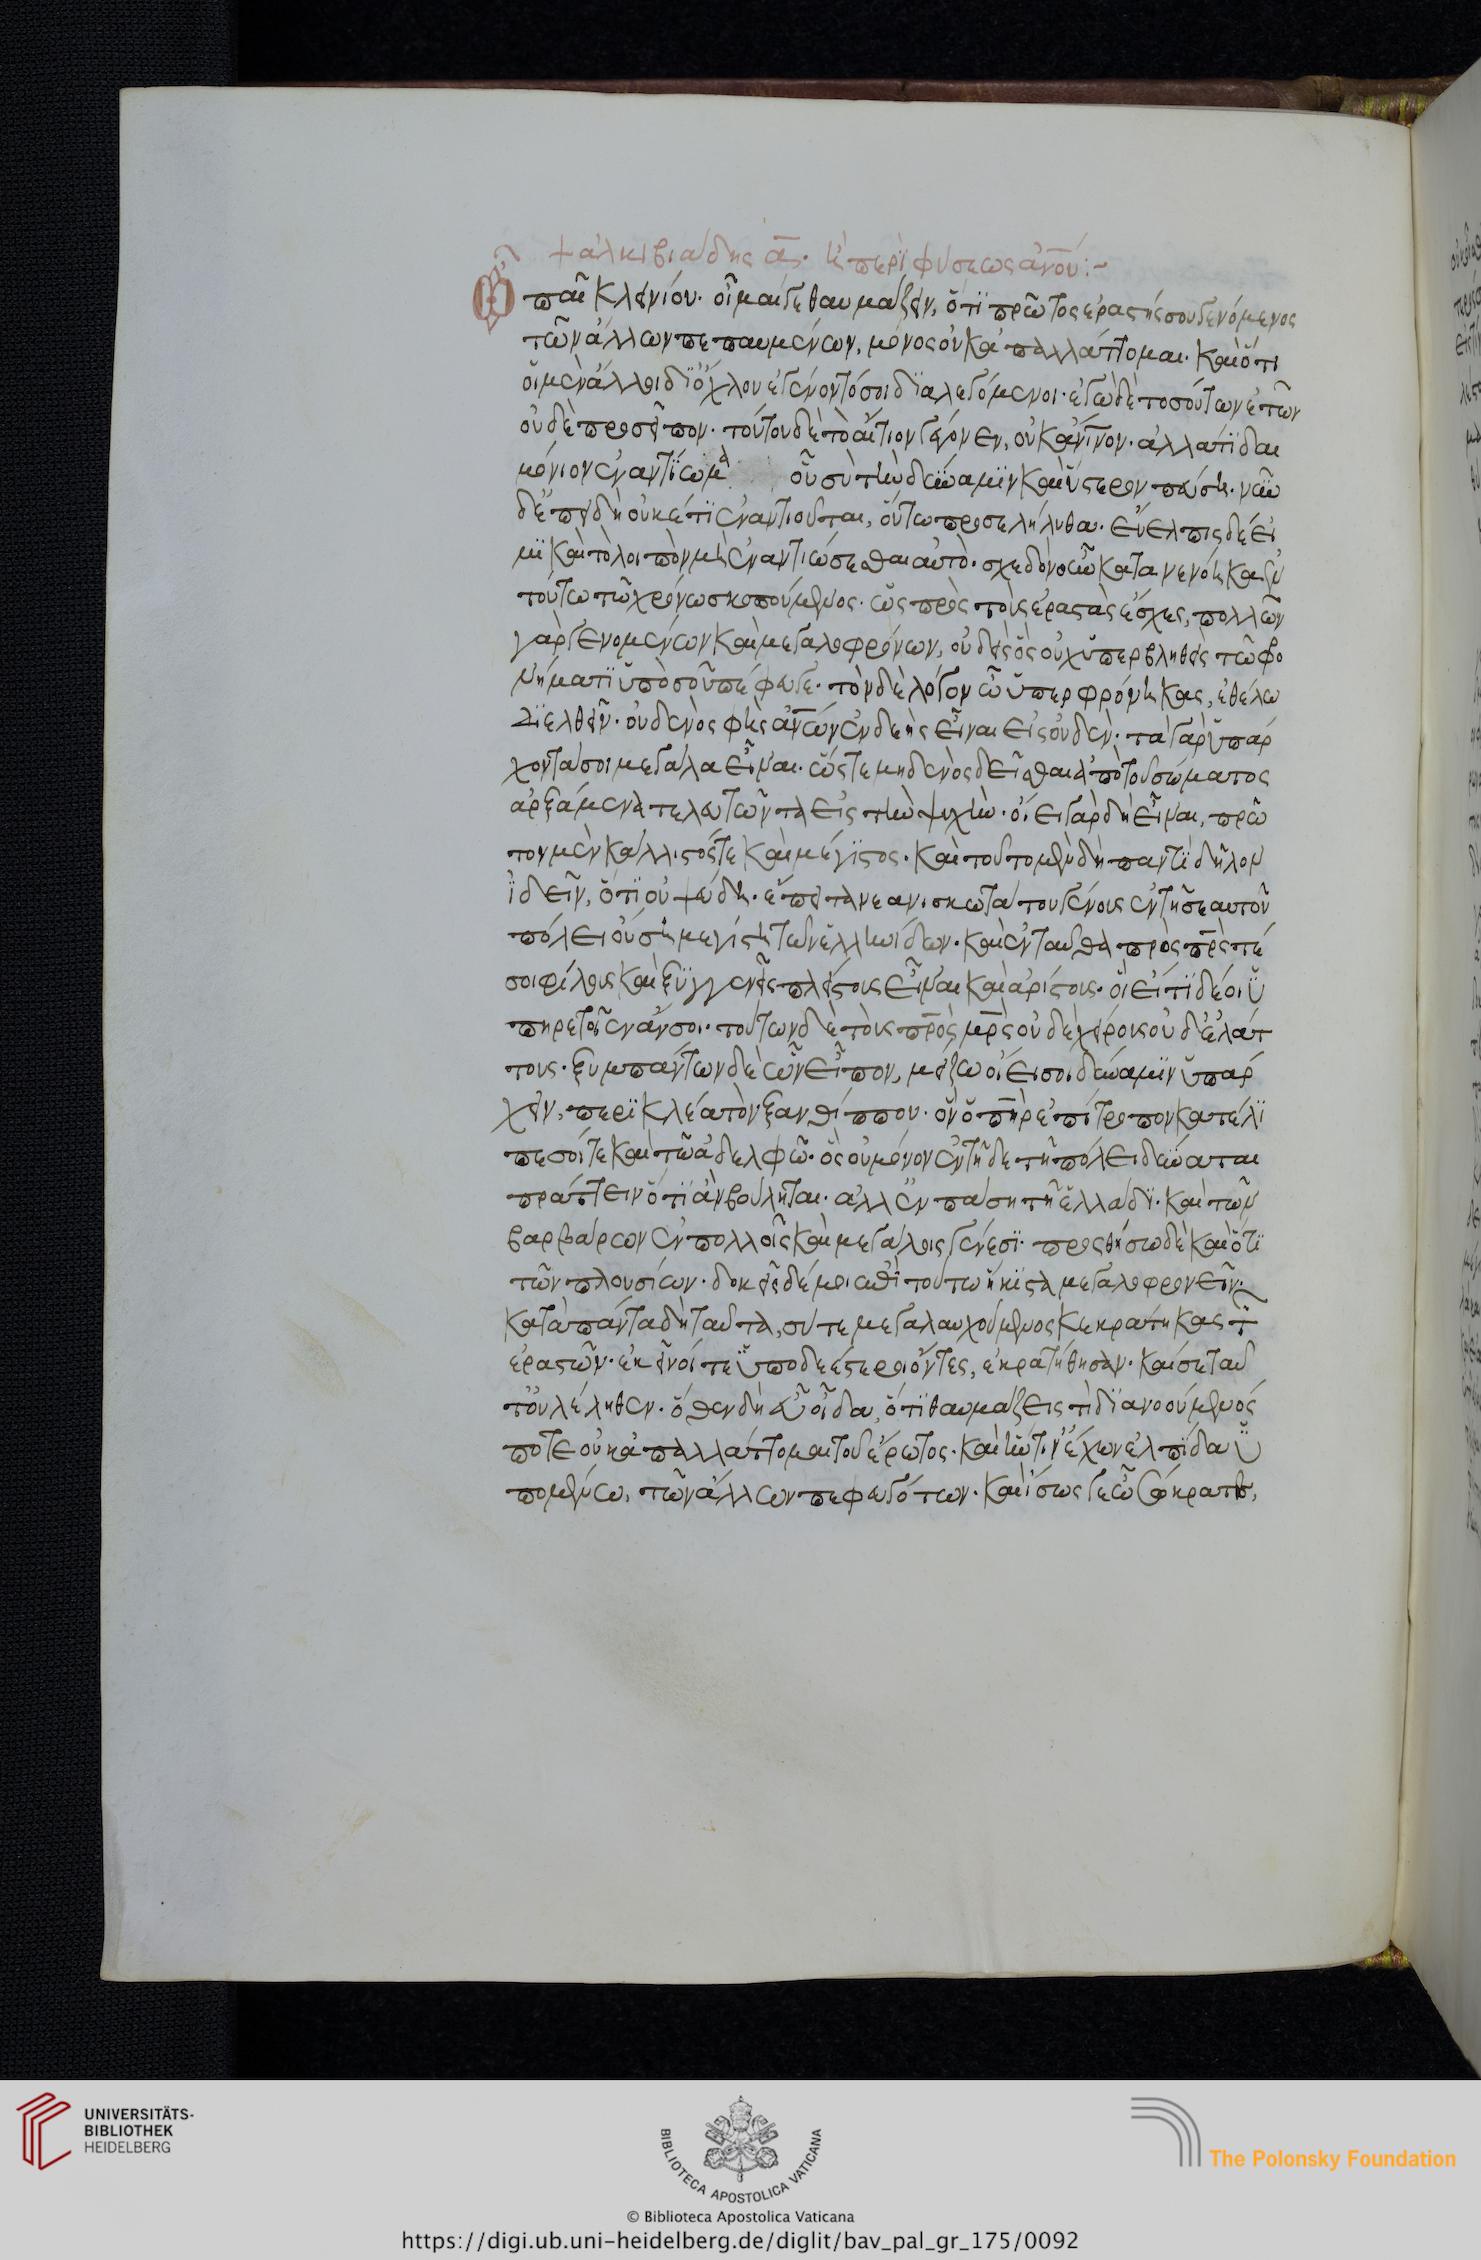 + ἀλκιβιάδης ᾱ. ἢ περὶ φύσεως ἀνου:-
Ὦ παῖ Κλεινίου. οἶμαί σε θαυμάζειν, ὅτι πρῶτος ἐραστής σου γενόμενος
τῶν ἄλλων πεπαυμένων, μόνος οὐκ ἀπαλλάττομαι. καὶ ὅτι
οἱ μὲν ἄλλοι δι' ὄχλου ἐγένοντό σοι διαλεγόμενοι. ἐγὼ δὲ τοσούτων ἐτῶν
οὐδὲ προσεῖπον. τούτου δὲ τὸ αἴτιον γέγονεν, οὐκ ἀνῖνον. ἀλλά τι δαι
μόνιον ἐναντίωμα οὗ σὺ τὴν δύναμιν καὶ ὕστερον πεύσῃ. νῦν
δὲ ἐπειδὴ οὐκέτι ἐναντιοῦται, οὕτω προσελήλυθα. εὔελπις δέ εἰ
μι καὶ τὸ λοιπὸν μὴ ἐναντιώσεσθαι αὐτὸ. σχεδὸν οὖν κατανενόηκα ἐν
τούτω τῶ χρόνω σκοπούμενος. ὡς πρὸς τοὺς ἐραστὰς ἔσχες, πολλῶν
γὰρ γενομένων καὶ μεγαλοφρόνων, οὐδεὶς ὃς οὐχ ὑπερβληθεὶς τῶ φρο
νήματι ὑπὸ σοῦ πέφευγε. τὸν δὲ λόγον ὧ ὑπερφρόνηκας, ἐθέλω
διελθεῖν. οὐδενὸς φὴς ἀνων ἐνδεὴς εἶναι εἰς οὐδὲν. τὰ γὰρ ὑπάρ
χοντά σοι μεγάλα εἶναι. ὥστε μηδενὸς δεῖσθαι ἀπὸ τοῦ σώματος
ἀρξάμενα τελευτῶντα εἰς τὴν ψυχὴν. οἴει γὰρ δὴ εἶναι, πρῶ
τον μὲν κάλλιστός τε καὶ μέγιστος. καὶ τοῦτο μὲν δὴ παντὶ δῆλον
ἰδεῖν, ὅτι οὐ ψεύδη. ἔπειτα νεανισκωτάτου γένους ἐν τῆ σεαυτοῦ
πόλει οὔσῃ μεγίστη τῶν ἑλληνίδων. καὶ ἐνταῦθα πρὸς πρς τέ
σοι φίλους καὶ ξυγγενεῖς πλείστους εἶναι καὶ ἀρίστους. οἳ εἴ τι δέοι ὑ
πηρετοῖεν ἄν σοι. τούτων δὲ τοὺς πρὸς μρς οὐδὲ χείρους οὐδ' ἐλάτ
τους. ξυμπάντων δὲ ὧν εἶπον, μείζω οἴει σοι δύναμιν ὑπάρ
χειν, περικλέα τὸν ξανθίππου. ὃν ὁ πηρ ἐπίτροπον κατέλι
πε σοί τε καὶ τῶ ἀδελφῶ. ὃς οὐ μόνον ἐν τῆδε τῆ πόλει δύναται
πράττειν ὅ τι ἂν βούληται. ἀλλ' ἐν πάση τῆ ἑλλάδι. καὶ τῶν
βαρβάρων ἐν πολλοῖς καὶ μεγάλοις γένεσι. προσθήσω δὲ καὶ ὅτι
τῶν πλουσίων. δοκεῖς δέ μοι ἐπὶ τούτω ἥκιστα μεγαλοφρονεῖν.
κατὰ πάντα δὴ ταῦτα, σύ τε μεγαλαυχούμενος κεκράτηκας τ
ἐραστῶν. ἐκεῖνοί τε ὑποδεέστεροι ὄντες, ἐκρατήθησαν. καί σε ταῦ
τ' οὐ λέληθεν. ὅθεν δὴ εὖ οἶδα, ὅτι θαυμάζεις τί διανοούμενός
ποτε οὐκ ἀπαλλάττομαι τοῦ ἔρωτος. καὶ ἥντιν' ἔχων ἐλπίδα ὑ
πομένω, τῶν ἄλλων πεφευγότων. καὶ ἴσως γε ὦ Σώκρατες,
UNIVERSITÄTS-
BIBLIOTHEK
HEIDELBERG
BIBLIOTECA APOSTOLICA VATICANA
The Polonsky Foundation
© Biblioteca Apostolica Vaticana
https://digi.ub.uni-heidelberg.de/diglit/bav_pal_gr_175/0092